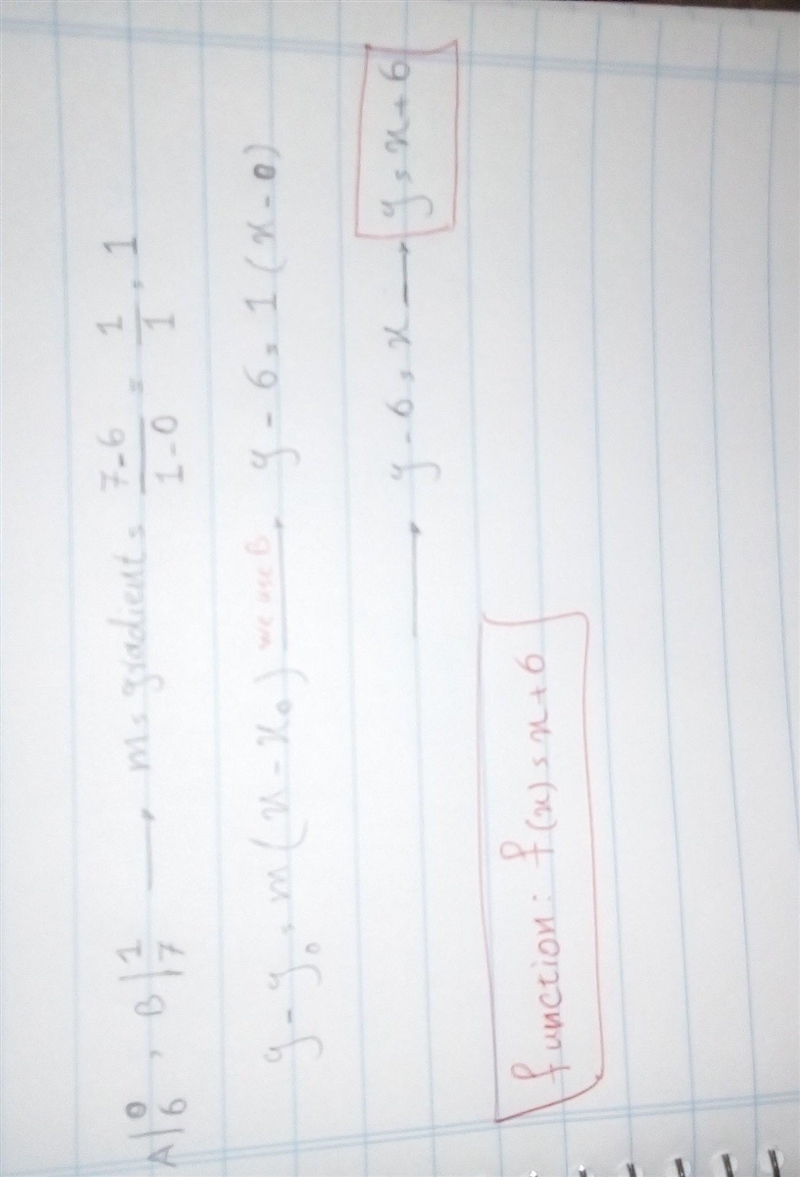 A|0/6 , B|1/7 → m = gradient = 7-6/1-0 = 1/1 = 1
y - y₀ = m(x - x₀) we use B → y - 6 = 1(x - 0)
→ y - 6 = x → y = x + 6
function: f(x) = x + 6